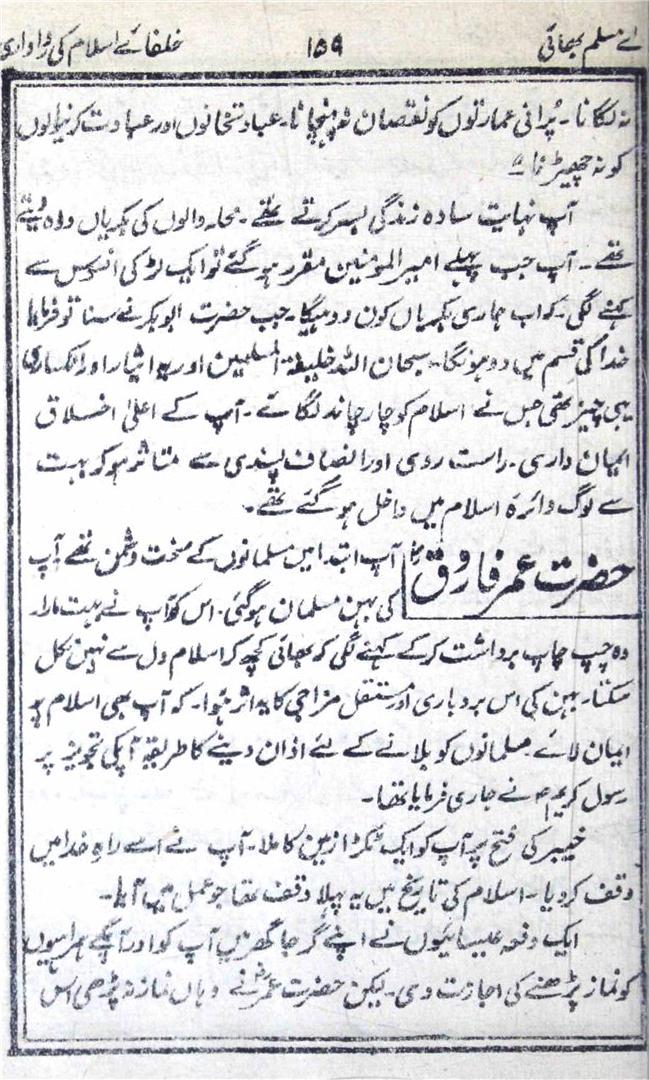 اے مسلم بھائی ۱۵۹ خلفائے اسلام کی رواداری
نہ لگانا۔ پُرانی عمارتوں کو نقصان نہ پہنچانا۔ عبادتخانوں اور عبادت کرنیوالوں
کو نہ چھیڑنا۔"
آپ نہایت سادہ زندگی بسر کرتے تھے۔ محلہ والوں کی بکریاں دوہ دیتے
تھے۔ آپ جب پہلے امیر المومنین مقرر ہو گئے تو ایک لڑکی افسوس سے
کہنے لگی۔ کہ اب ہماری بکریاں کون دوہیگا۔ جب حضرت ابوبکر نے سنا تو فرمایا
خدا کی قسم میں دوہونگا۔ سبحان اللہ خلیفۃ المسلمین اور یہ ایثار اور انکساری
یہی چیز تھی جس نے اسلام کو چار چاند لگائے۔ آپ کے اعلیٰ اخلاق
ایمان داری۔ راست روی اور انصاف پسندی سے متاثر ہو کر بہت
سے لوگ دائرہ اسلام میں داخل ہو گئے تھے۔
حضرت عمر فاروقؓ آپ ابتدا میں مسلمانوں کے سخت دشمن تھے آپ
کی بہن مسلمان ہو گئی۔ اس کو آپ نے بہت مارا۔
وہ چپ چاپ برداشت کر کے کہنے لگی کہ بھائی کچھ کر اسلام دل سے نہیں نکل
سکتا۔ بہن کی اس بردباری اور مستقل مزاجی کا یہ اثر ہُوا۔ کہ آپ بھی اسلام پر
ایمان لائے۔ مسلمانوں کو بلانے کے لئے اذان دینے کا طریقہ آپکی تجویز پر
رسول کریمؐ نے جاری فرمایا تھا۔
خیبر کی فتح پر آپ کو ایک ٹکڑا زمین کا ملا۔ آپ نے اُسے راہِ خدا میں
وقف کر دیا۔ اسلام کی تاریخ میں یہ پہلا وقف تھا جو عمل میں آیا۔
ایک دفعہ عیسائیوں نے اپنے گرجا گھر میں آپ کو اور آپکے ہمراہیوں
کو نماز پڑھنے کی اجازت دی۔ لیکن حضرت عمرؓ نے وہاں نماز نہ پڑھی اس